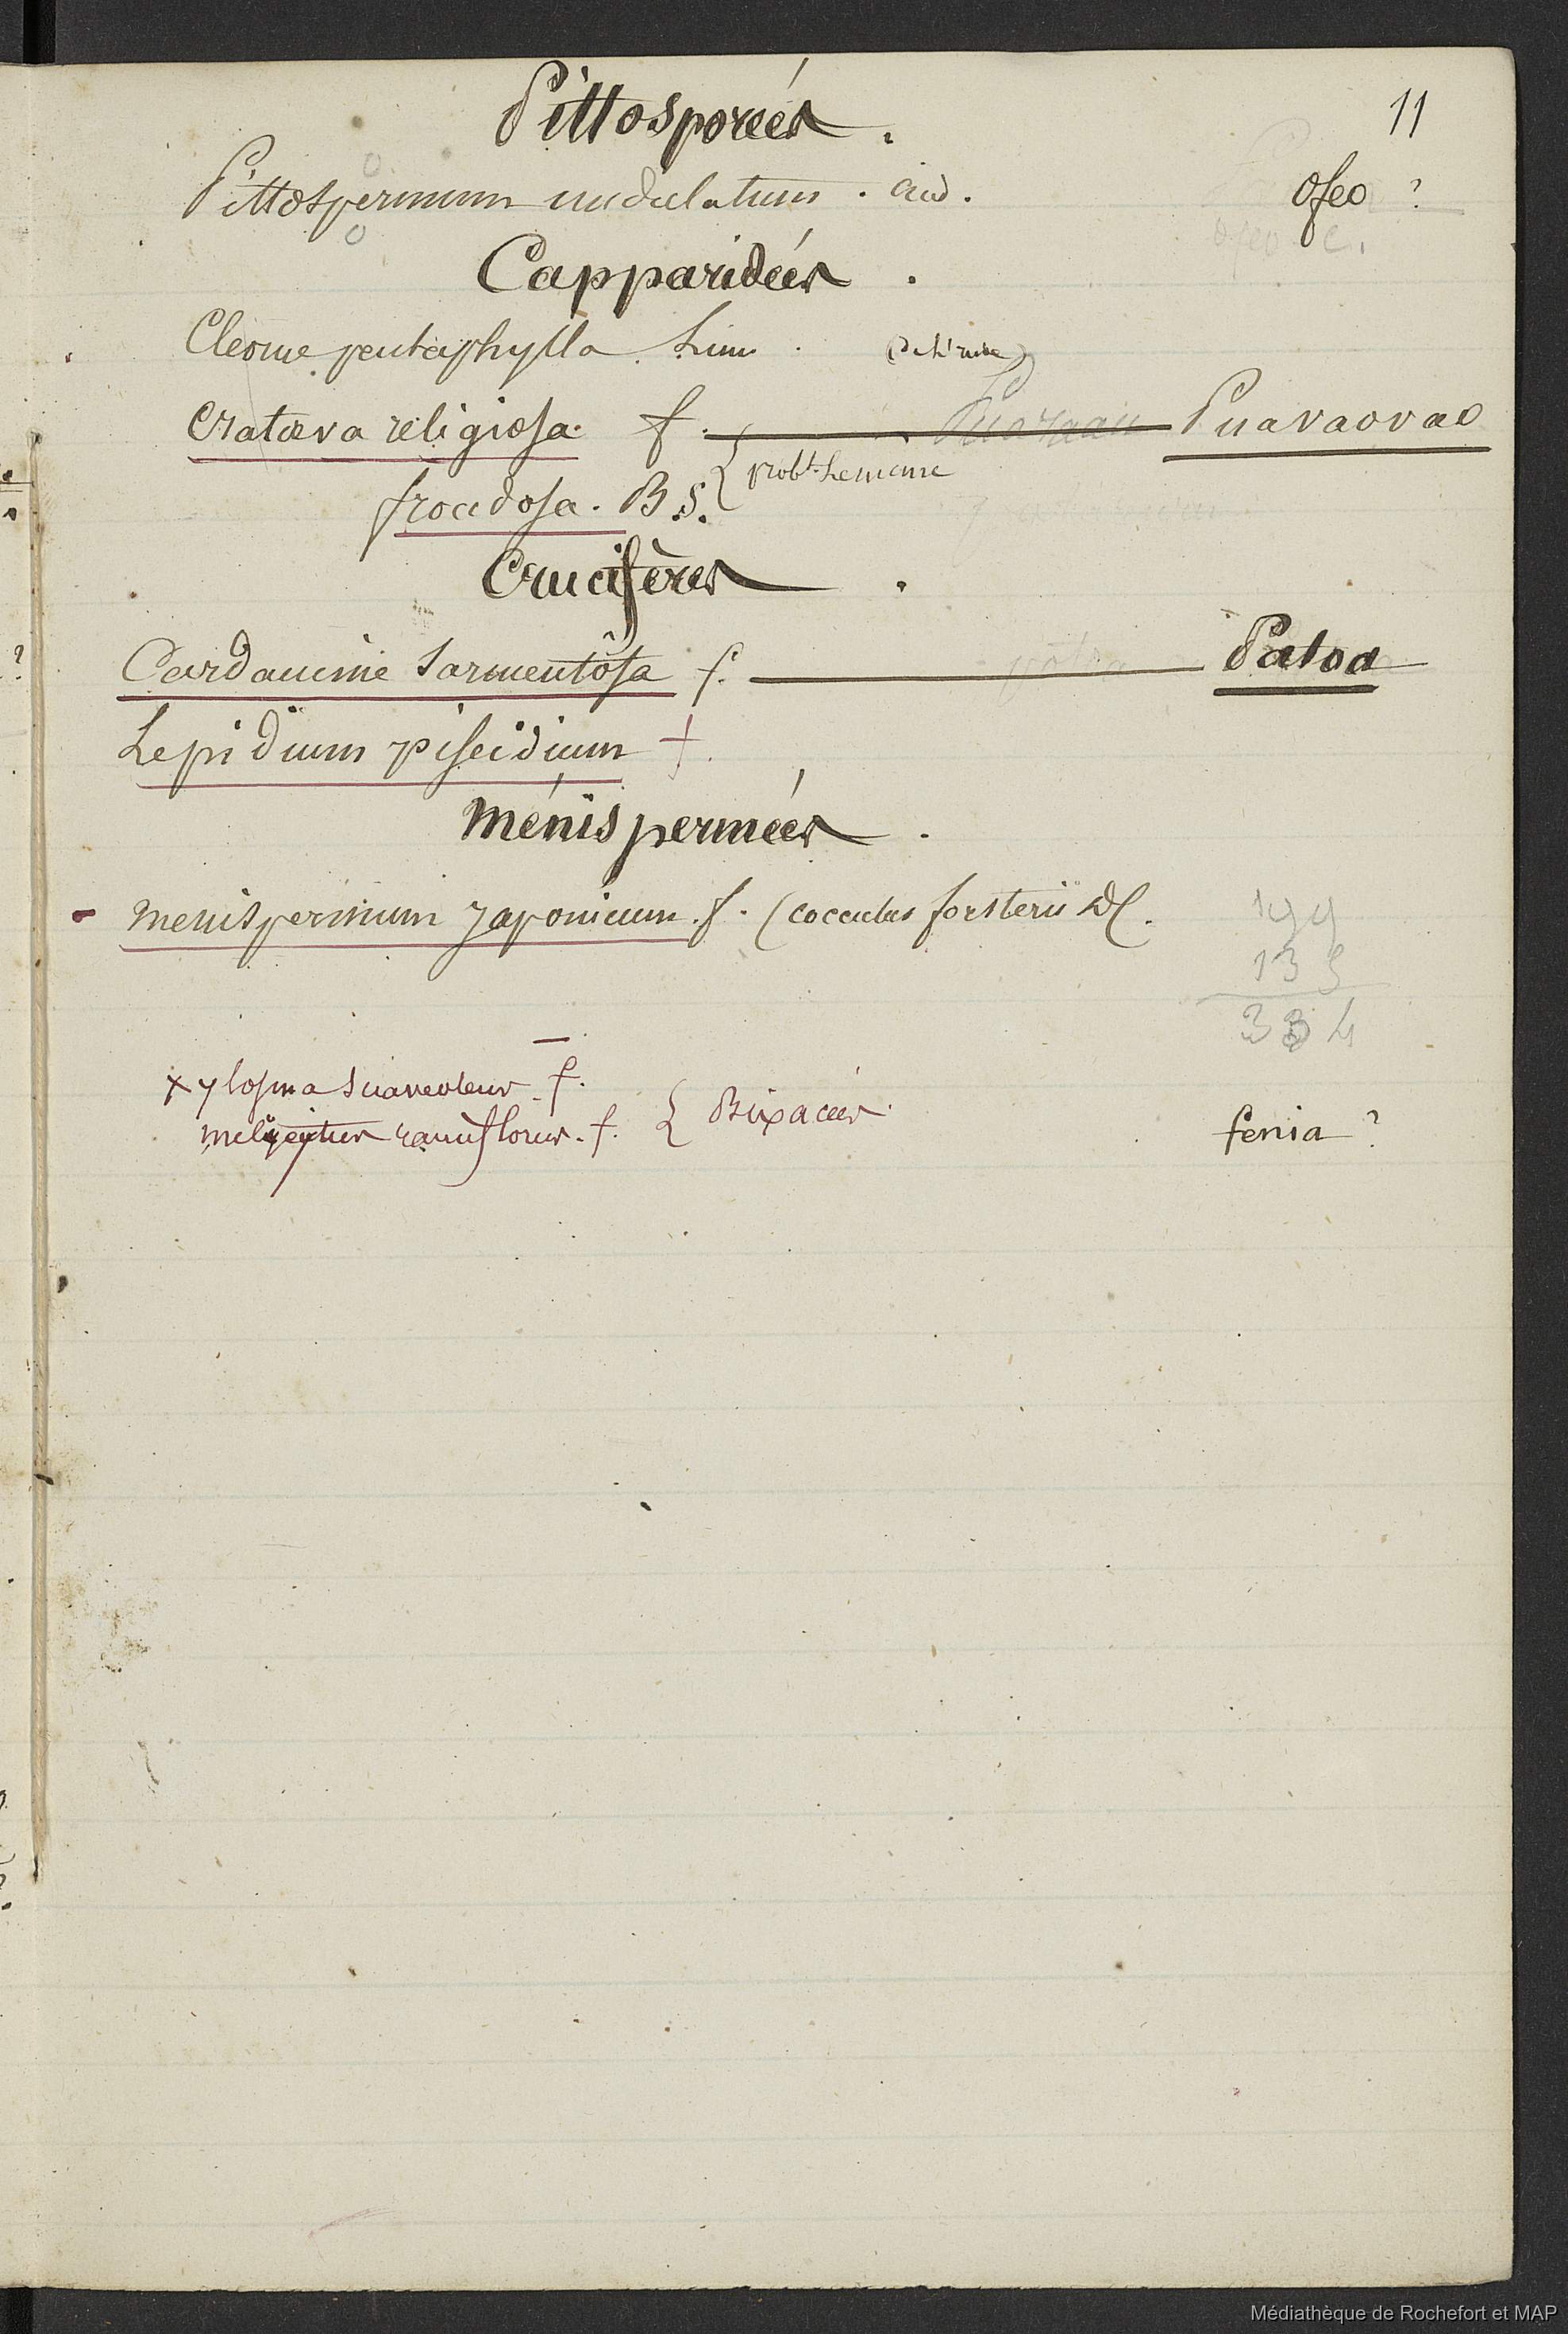 11
Pittosporées.
Pittospermum undulatum. And. ofeo ?
ofeo
Capparidées.
Cleome pentaphylla. Linn.
Cratæva religiosa. f. Puavaovao
frondosa. B.S. { probt. le meme
Crucifères.
Cardamine sarmentosa f. patoa Patoa
Lepidium piscidium f.
Ménispermées.
Menispermum japonicum. f. (cocculus forsterii DC.
199
135
334
Xylosma suaveolens. f.
ramiflorus. f. { Bixacées. fenia ?
Médiathèque de Rochefort et MAP